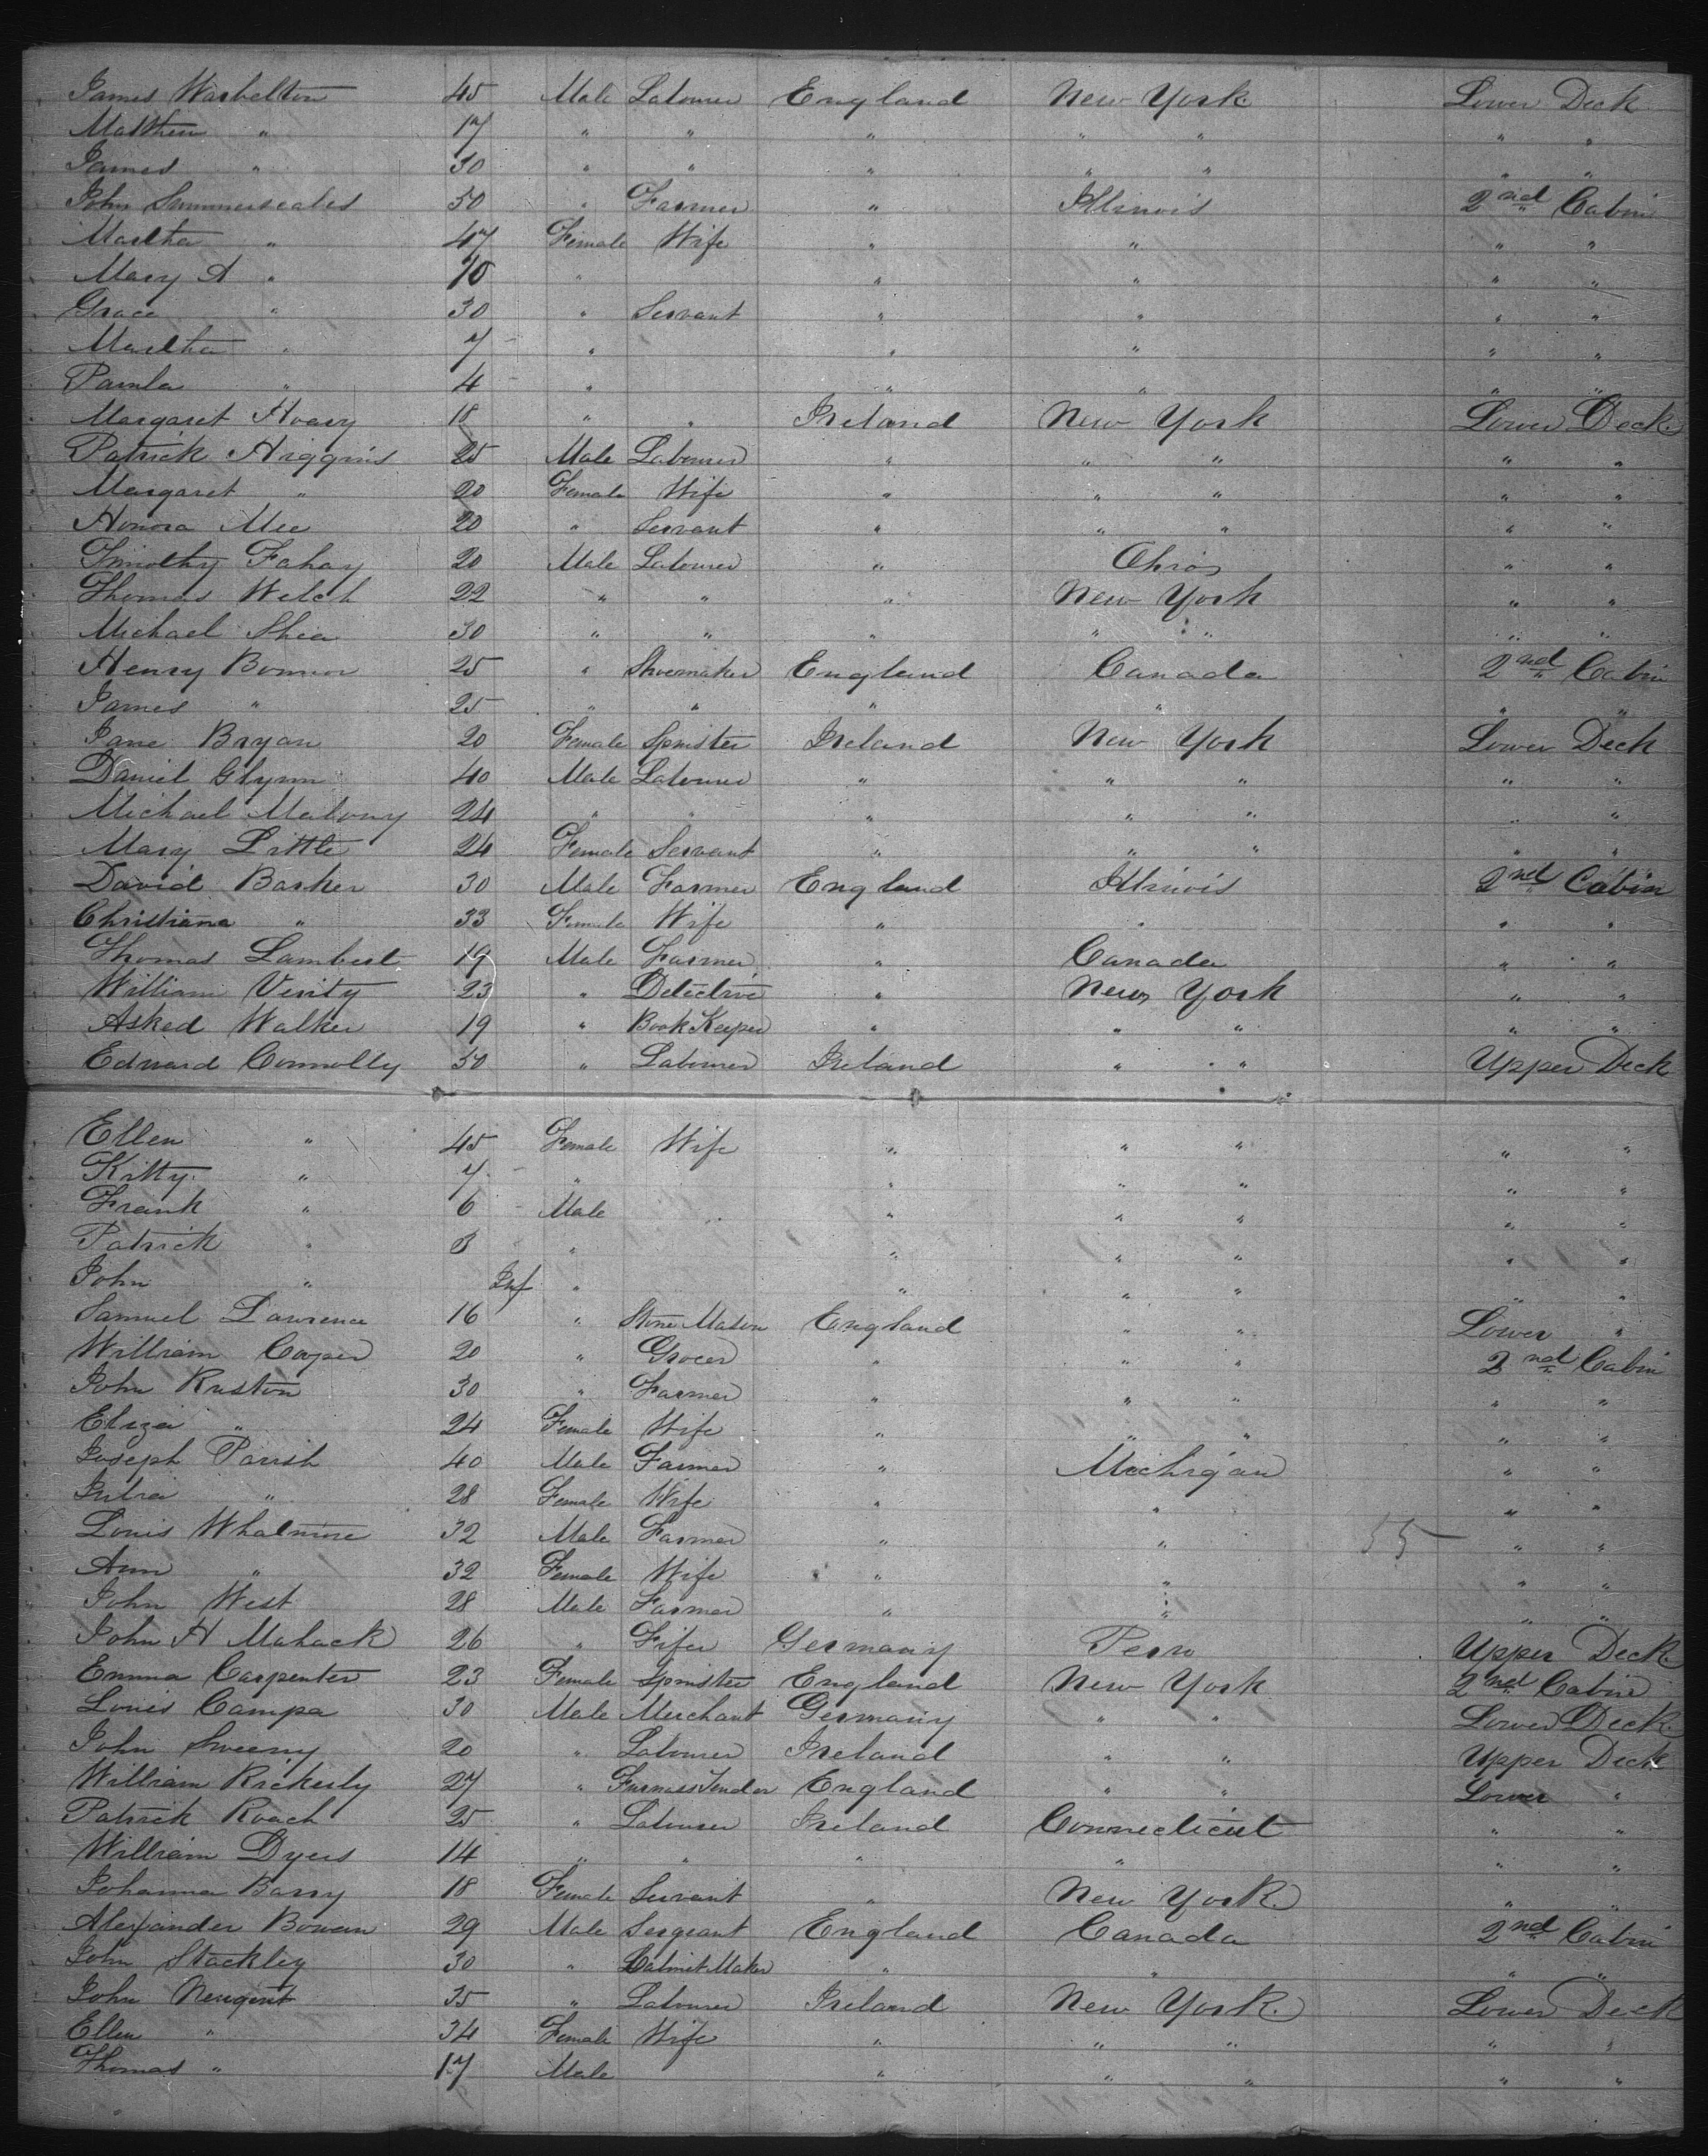 James Warbelton 45 Male Labourer England New York Lower Deck
Matthew " 17 " " " " " " "
James " 30 " " " " " " "
John Summerscales 50 " Farmer " Illinois 2nd Cabin
Martha " 47 Female Wife " " " "
Mary A " 10 " " " " "
Grace " 30 " Servant " " " "
Martha " 7 " " " " "
Pamla " 4 " " " " "
Margaret Hoary 18 " " Ireland New York Lower Deck
Patrick Higgins 25 Male Labourer " " " " "
Margaret " 20 Female Wife " " " " "
Honora Mee 20 " Servant " " " " "
Timothy Fahay 20 Male Labourer " Ohio " "
Thomas Welch 22 " " " New York " "
Michael Shea 30 " " " " " " "
Henry Bonnor 25 " Shoemaker England Canada 2nd Cabin
James " 25 " " " " " "
Jane Bryan 20 Female Spinster Ireland New York Lower Deck
Daniel Glynn 40 Male Labourer " " " " "
Michael Malony 24 " " " " " " "
Mary Little 24 Female Servant " " " " "
David Barker 30 Male Farmer England Illinois 2nd Cabin
Christiana " 33 Female Wife " " " "
Thomas Lambert 19 Male Farmer " Canada " "
William Verity 23 " Detective " New York " "
Asked Walker 19 " Book Keeper " " " " "
Edward Connolly 50 " Labourer Ireland " " Upper Deck
Ellen " 45 Female Wife " " " " "
Kitty " 7 " " " " " "
Frank " 6 Male " " " " "
Patrick " 3 " " " " " "
John " Inf " " " " " "
Samuel Lawrence 16 " Stone Mason England " " Lower "
William Cooper 20 " Grocer " " " 2nd Cabin
John Ruston 30 " Farmer " " " " "
Eliza " 24 Female Wife " " " " "
Joseph Parish 40 Male Farmer " Michigan " "
" 28 Female Wife " " " "
Louis Whatmore 32 Male Farmer " " 55 " "
Ann " 32 Female Wife " " " "
John West 28 Male Farmer " " " "
John H Mahack 26 " Fifer Germany Peru Upper Deck
Emma Carpenter 23 Female Spinster England New York 2nd Cabin
Louis Campa 30 Male Merchant Germany " " Lower Deck
John Sweeny 20 " Labourer Ireland " " Upper Deck
William Rickerly 27 " Furnass Tender England " " Lower "
Patrick Roach 25 " Labourer Ireland Connecticut " "
William Dyers 14 " " " " " "
Johanna Barry 18 Female Servant " New York " "
Alexander Bowen 29 Male Sergeant England Canada 2nd Cabin
John Stackley 30 " Cabinet Maker " " " "
John Neugent 35 " Labourer Ireland New York Lower Deck
Ellen " 34 Female Wife " " " " "
Thomas " 17 Male " " " " "